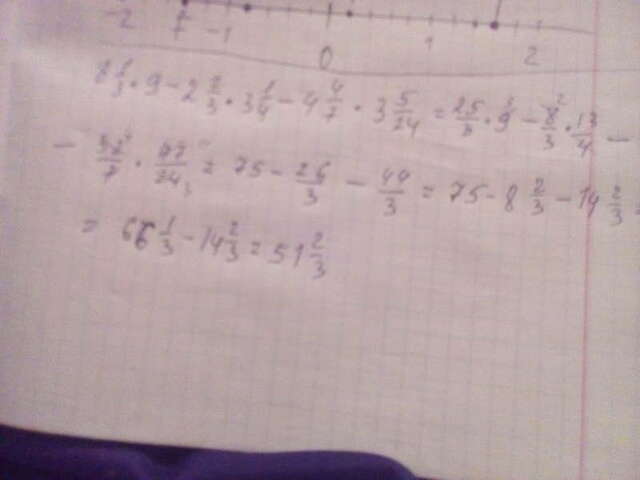 -2 -1 0 1 2
8 1/3 · 9 - 2 2/3 · 3 1/4 - 4 4/7 · 3 5/24 = 25/3 · 9 - 8/3 · 13/4 -
- 32/7 · 77/24 = 75 - 26/3 - 44/3 = 75 - 8 2/3 - 14 2/3 =
= 66 1/3 - 14 2/3 = 51 2/3